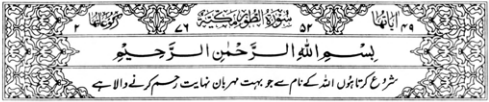 اٰیاتها ۴۹ ۵۲ سُوْرَةُ الطُّوْرِ مَكِّیَّةٌ ۷۶ رکوعاتها ۲
بِسْمِ اللّٰهِ الرَّحْمٰنِ الرَّحِیْمِ
شروع کرتا ہوں اللہ کے نام سے جو بہت مہربان نہایت رحم کرنے والا ہے